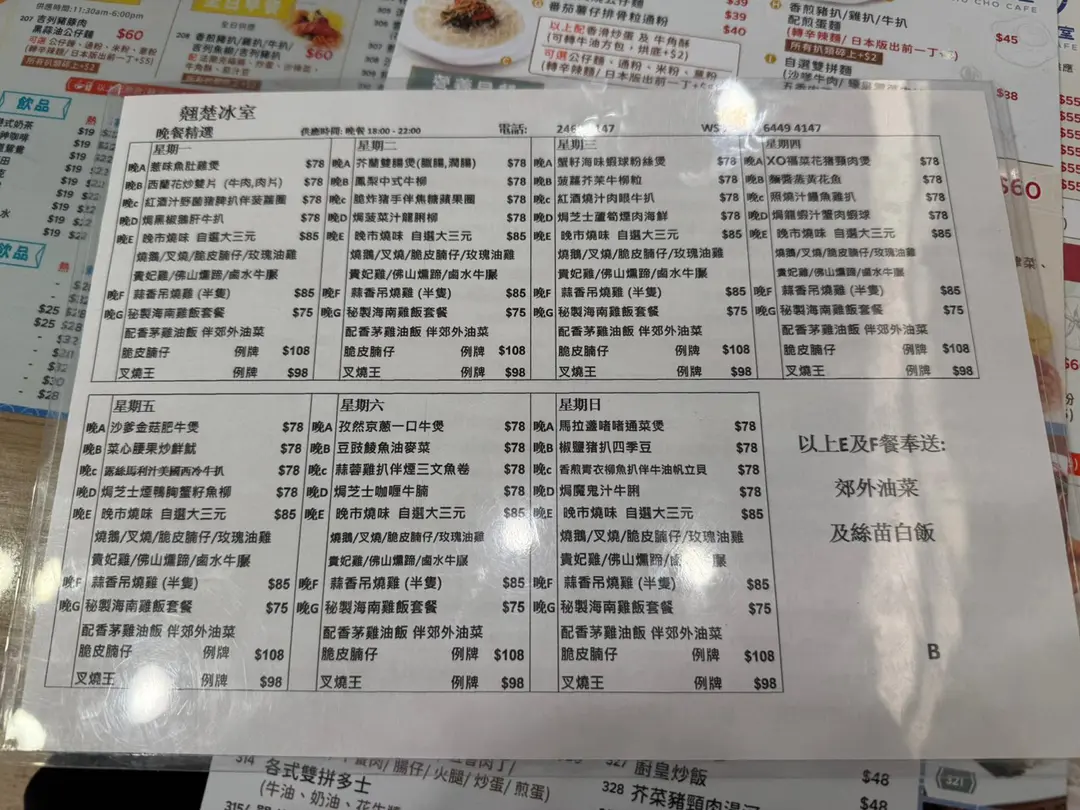 供應時間:11:30am-6:00pm
207 吉列豬腩肉
黑蒜油公仔麵 $60
可選 公仔麵、通粉、米粉、薏粉
(轉辛辣麵/日本版出前一丁+$5)
所有扒類碎上+$2
全日供應
208 香煎豬扒/雞扒/牛扒/
吉列魚柳/吉列豬扒 $60
番茄薯仔排骨粒通粉 $39
$39
$40
以上配香滑炒蛋 及 牛角酥
(可轉牛油方包,烘底+$2)
可選公仔麵、通粉、米粉、薏粉
(轉辛辣麵/日本版出前一丁+$5)
香煎豬扒/雞扒/牛扒
配煎蛋麵 $45
(轉辛辣麵/日本版出前一丁+$5)
所有扒類碎上+$2
自選雙拼麵 $38
CHO CAFE
飲品
熱
$19
$19
$19
$19
$19
$19
飲品
熱
$25 $28
$25 $28
- $28
- $32
- $30
- $28
$60
翹楚冰室
晚餐精選 供應時間: 晚餐 18:00 - 22:00 電話: 246 147 WS 6449 4147
星期一
晚A 惹味魚肚雞煲 $78
晚B 西蘭花炒雙片 (牛肉,肉片) $78
晚c 紅酒汁野菌豬脾扒伴菠蘿圈 $78
晚D 焗黑椒鵝肝牛扒 $78
晚E 晚市燒味 自選大三元 $85
燒鵝/叉燒/脆皮腩仔/玫瑰油雞
貴妃雞/佛山燻蹄/鹵水牛𦟌
晚F 蒜香吊燒雞 (半隻) $85
晚G 秘製海南雞飯套餐 $75
配香茅雞油飯 伴郊外油菜
脆皮腩仔 例牌 $108
叉燒王 例牌 $98
星期二
晚A 芥蘭雙腸煲(臘腸,潤腸) $78
晚B 鳳梨中式牛柳 $78
晚c 脆炸豬手伴焦糖蘋果圈 $78
晚D 焗菠菜汁龍脷柳 $78
晚E 晚市燒味 自選大三元 $85
燒鵝/叉燒/脆皮腩仔/玫瑰油雞
貴妃雞/佛山燻蹄/鹵水牛𦟌
晚F 蒜香吊燒雞 (半隻) $85
晚G 秘製海南雞飯套餐 $75
配香茅雞油飯 伴郊外油菜
脆皮腩仔 例牌 $108
叉燒王 例牌 $98
星期三
晚A 蟹籽海味蝦球粉絲煲 $78
晚B 菠蘿芥茉牛柳粒 $78
晚c 紅酒燒汁肉眼牛扒 $78
晚D 焗芝士蘆筍煙肉海鮮 $78
晚E 晚市燒味 自選大三元 $85
燒鵝/叉燒/脆皮腩仔/玫瑰油雞
貴妃雞/佛山燻蹄/鹵水牛𦟌
晚F 蒜香吊燒雞 (半隻) $85
晚G 秘製海南雞飯套餐 $75
配香茅雞油飯 伴郊外油菜
脆皮腩仔 例牌 $108
叉燒王 例牌 $98
星期四
晚A XO福菜花豬頸肉煲 $78
晚B 麵醬蒸黃花魚 $78
晚c 照燒汁鱔魚雞扒 $78
晚D 焗龍蝦汁蟹肉蝦球 $78
晚E 晚市燒味 自選大三元 $85
燒鵝/叉燒/脆皮腩仔/玫瑰油雞
貴妃雞/佛山燻蹄/鹵水牛𦟌
晚F 蒜香吊燒雞 (半隻) $85
晚G 秘製海南雞飯套餐 $75
配香茅雞油飯 伴郊外油菜
脆皮腩仔 例牌 $108
叉燒王 例牌 $98
星期五
晚A 沙爹金菇肥牛煲 $78
晚B 菜心腰果炒鮮魷 $78
晚c 露絲瑪利汁美國西冷牛扒 $78
晚D 焗芝士煙鴨胸蟹籽魚柳 $78
晚E 晚市燒味 自選大三元 $85
燒鵝/叉燒/脆皮腩仔/玫瑰油雞
貴妃雞/佛山燻蹄/鹵水牛𦟌
晚F 蒜香吊燒雞 (半隻) $85
晚G 秘製海南雞飯套餐 $75
配香茅雞油飯 伴郊外油菜
脆皮腩仔 例牌 $108
叉燒王 例牌 $98
星期六
晚A 孜然京蔥一口牛煲 $78
晚B 豆豉鯪魚油麥菜 $78
晚c 蒜蓉雞扒伴煙三文魚卷 $78
晚D 焗芝士咖喱牛腩 $78
晚E 晚市燒味 自選大三元 $85
燒鵝/叉燒/脆皮腩仔/玫瑰油雞
貴妃雞/佛山燻蹄/鹵水牛𦟌
晚F 蒜香吊燒雞 (半隻) $85
晚G 秘製海南雞飯套餐 $75
配香茅雞油飯 伴郊外油菜
脆皮腩仔 例牌 $108
叉燒王 例牌 $98
星期日
晚A 馬拉盞啫啫通菜煲 $78
晚B 椒鹽豬扒四季豆 $78
晚c 香煎青衣柳魚扒伴牛油帆立貝 $78
晚D 焗魔鬼汁牛脷 $78
晚E 晚市燒味 自選大三元 $85
燒鵝/叉燒/脆皮腩仔/玫瑰油雞
貴妃雞/佛山燻蹄/鹵水牛𦟌
晚F 蒜香吊燒雞 (半隻) $85
晚G 秘製海南雞飯套餐 $75
配香茅雞油飯 伴郊外油菜
脆皮腩仔 例牌 $108
叉燒王 例牌 $98
以上E及F餐奉送:
郊外油菜
及絲苗白飯
B
314
腸仔/火腿/炒蛋/煎蛋)
各式雙拼多士
(牛油、奶油、花生醬
315/
327 廚皇炒飯 $48
328 芥菜豬頸肉湯 $48
321